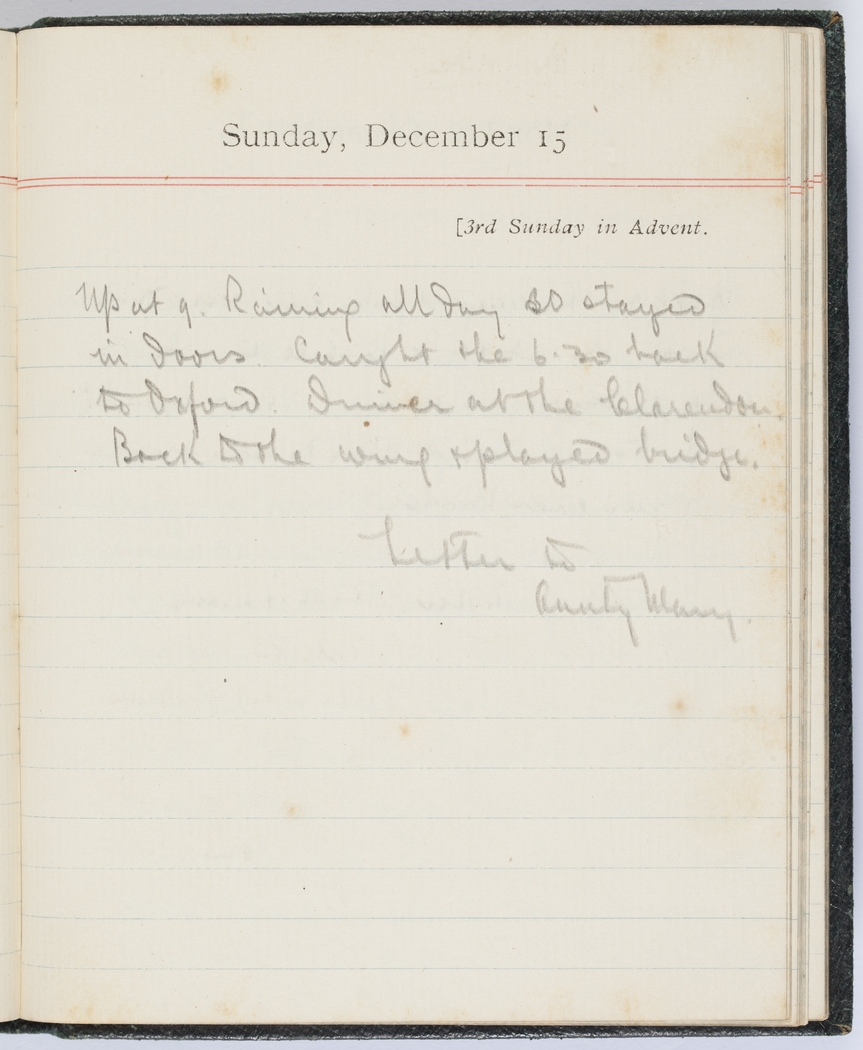 Sunday, December 15
[3rd Sunday in Advent.
Up at 9. Raining all day so stayed
in doors. Caught the 6.30 back
to Oxford. Dinner at the Clarendon.
Back to the wing & played bridge.
Letter to
Aunty Mary.